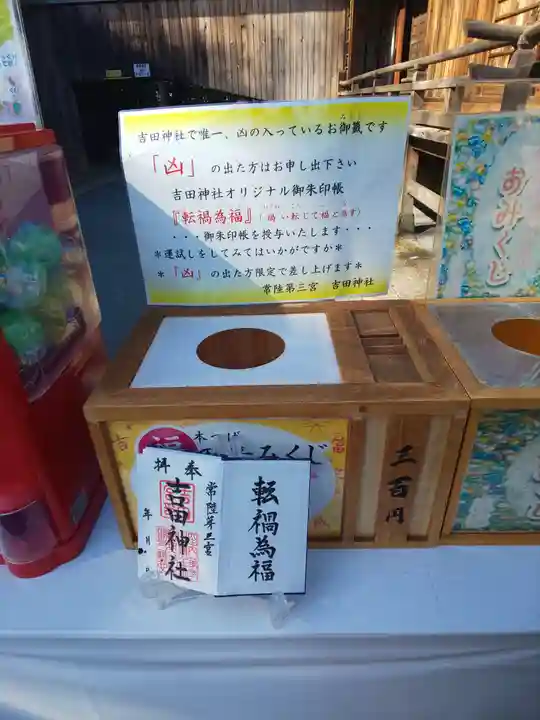 吉田神社で唯一、凶の入っているお御籤です
「凶」の出た方はお申し出下さい
吉田神社オリジナル御朱印帳
『転禍為福』(禍い転じて福と為す)
・・・御朱印帳を授与いたします・・・
＊運試しをしてみてはいかがですか＊
＊『凶』の出た方限定で差し上げます＊
常陸第三宮　吉田神社
おみくじ
福
みくじ
三百円
奉拝
常陸第三宮
吉田神社
年月日
転禍為福